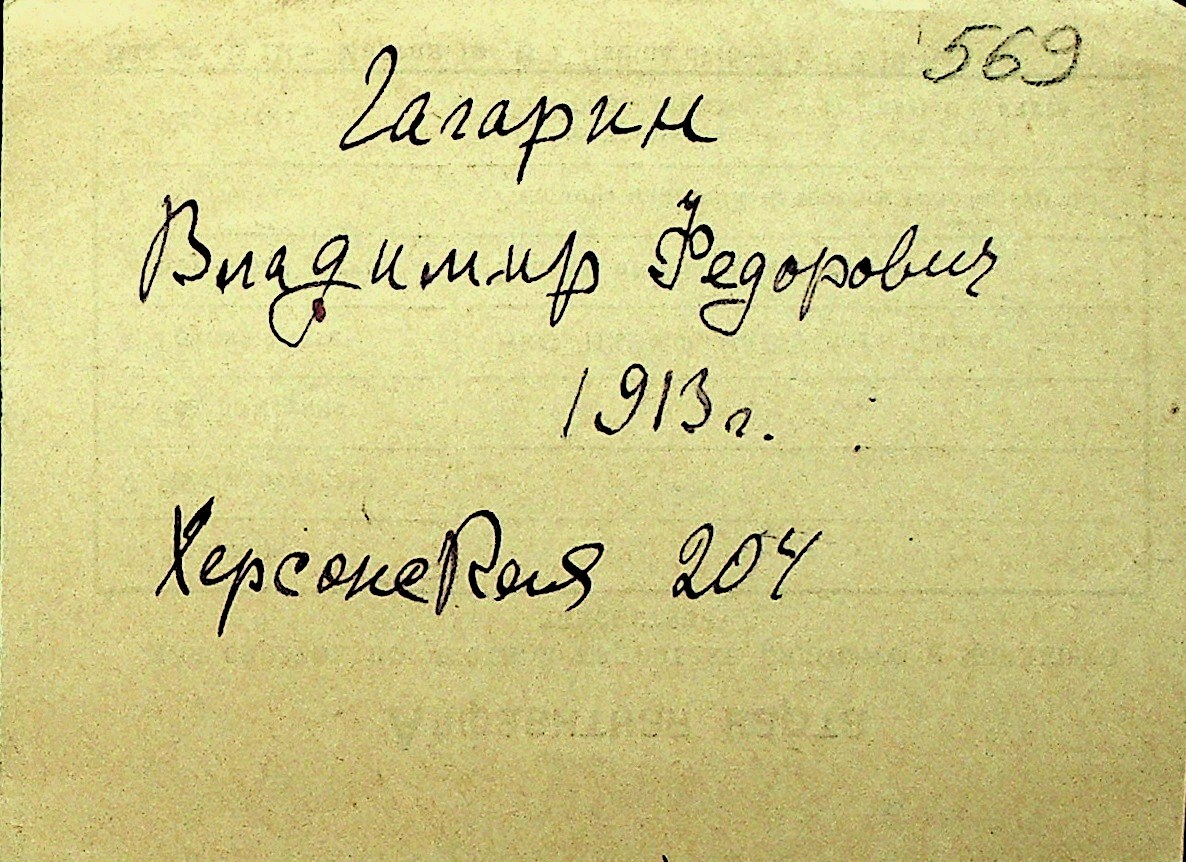 569
Гагарин
Владимир Федорович
1913 г.
Херсонская 204